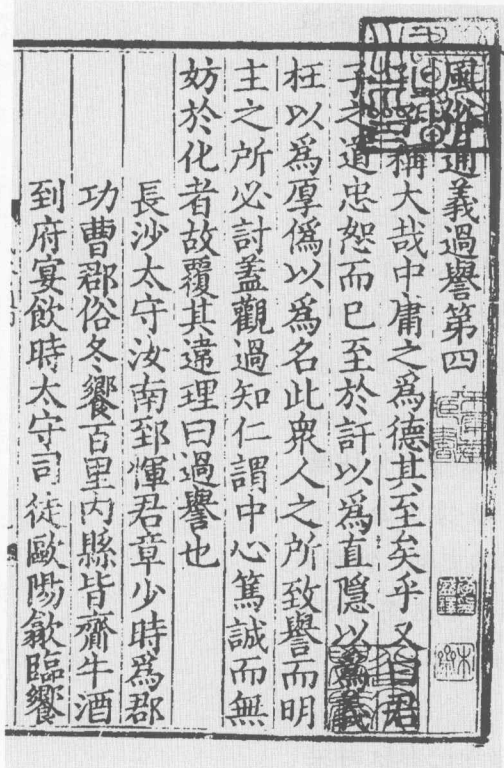 風俗通義過譽第四
孔子稱大哉中庸之爲德其至矣乎又曰君
子之道忠恕而已至於訐以爲直隱以爲義
枉以爲厚僞以爲名此衆人之所致譽而明
主之所必討蓋觀過知仁謂中心篤誠而無
妨於化者故覆其違理曰過譽也
長沙太守汝南郅惲君章少時爲郡
功曹郡俗冬饗百里內縣皆齎牛酒
到府宴飲時太守司徒歐陽歙臨饗